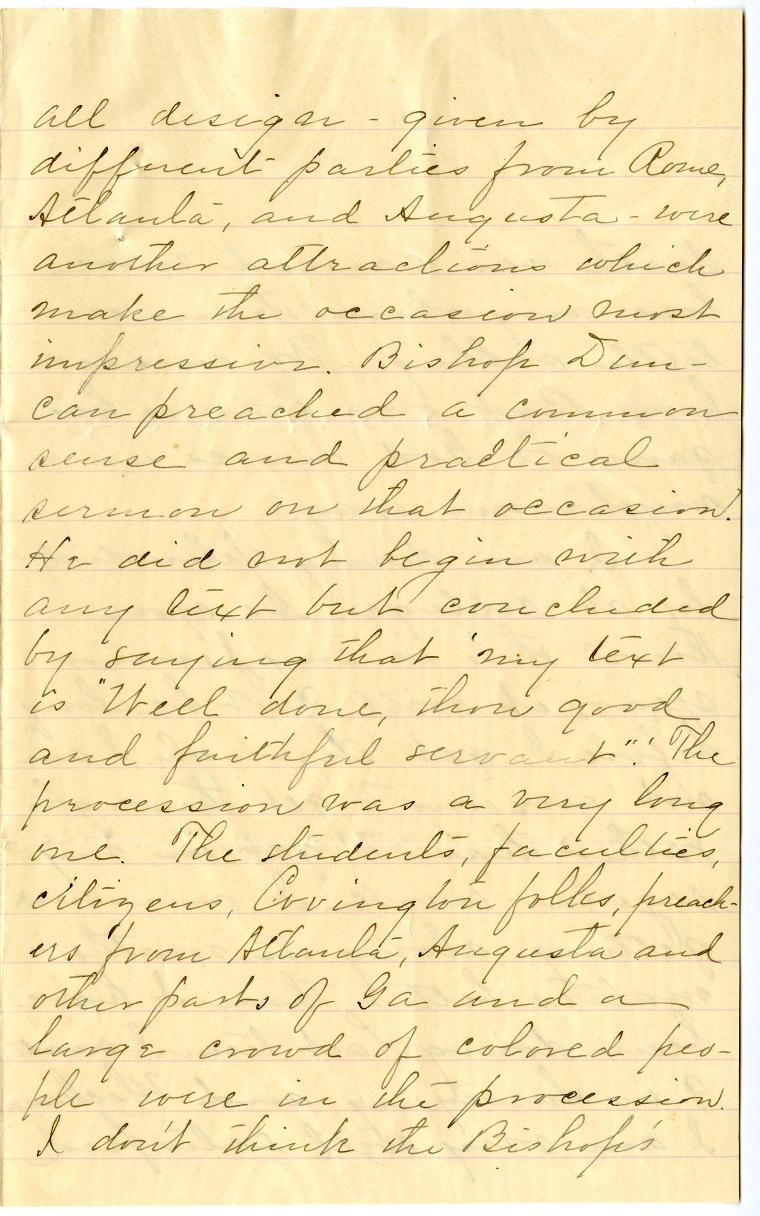 all design - given by
different parties from Rome,
Atlanta, and Augusta - were
another attractions which
make the occasion most
impressive. Bishop Dun-
can preached a common
sense and practical
sermon on that occasion.
He did not begin with
any text but concluded
by saying that 'my text
is "Well done, thou good
and faithful servant".' The
procession was a very long
one. The students, faculties,
citizens, Covington folks, preach-
ers from Atlanta, Augusta and
other parts of Ga and a
large crowd of colored peo-
ple were in the procession.
I don't think the Bishop's